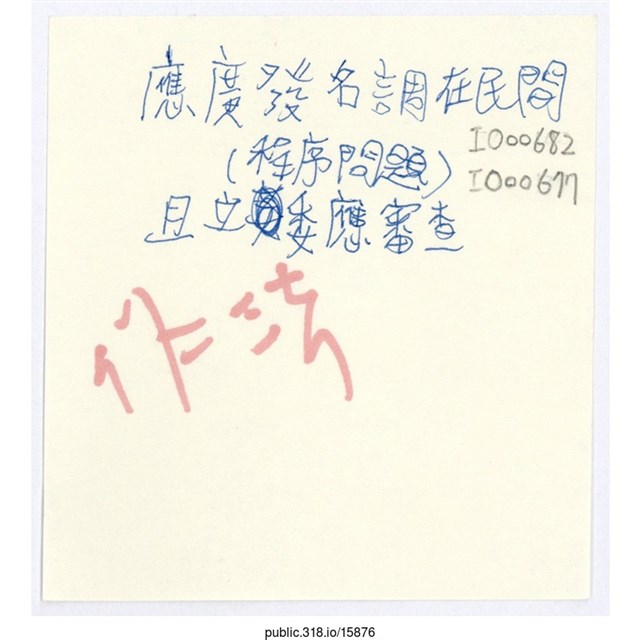 應廣發名調在民間
(程序問題)
且立委應審查
IO00682
IO00677
public.318.io/15876